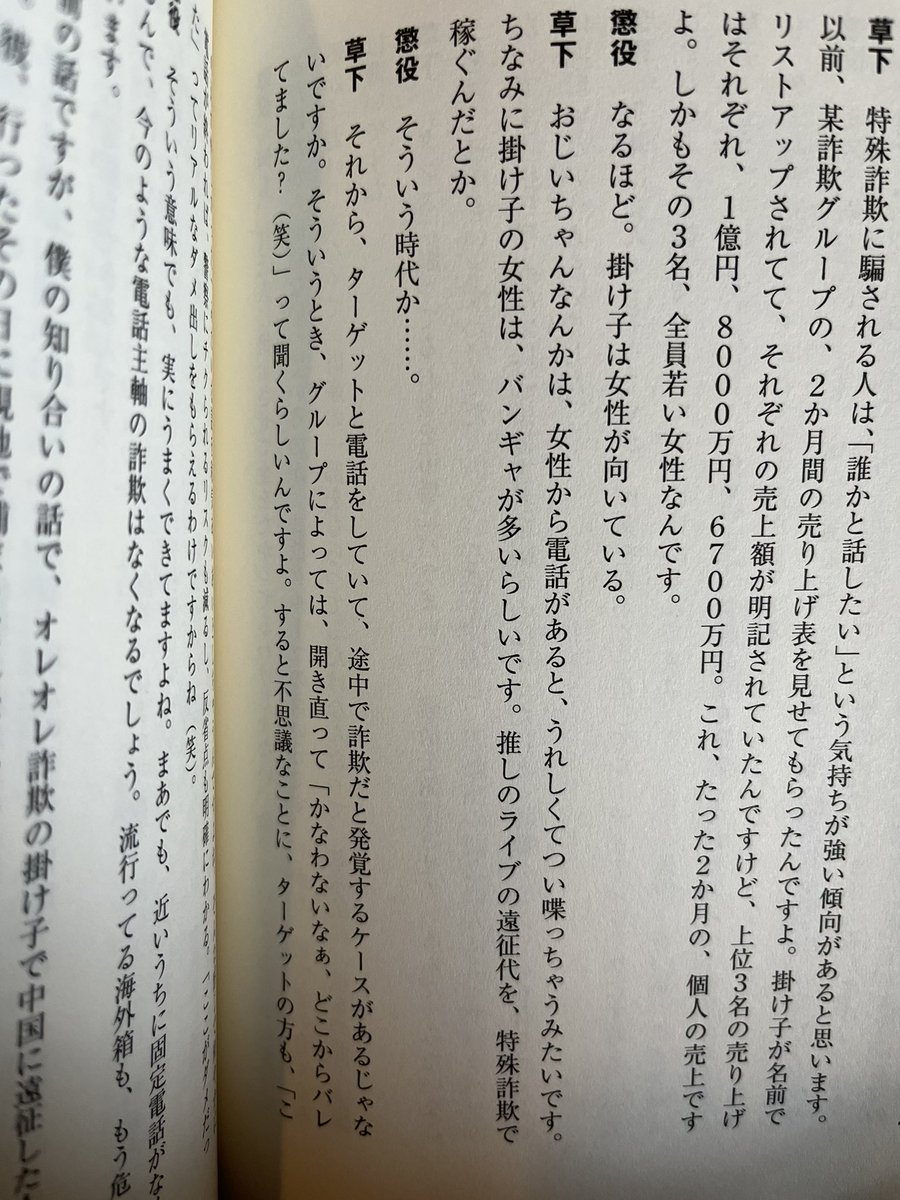 草下　特殊詐欺に騙される人は、「誰かと話したい」という気持ちが強い傾向があると思います。
以前、某詐欺グループの、2か月間の売り上げ表を見せてもらったんですよ。掛け子が名前で
リストアップされてて、それぞれの売上額が明記されていたんですけど、上位3名の売り上げ
はそれぞれ、1億円、8000万円、6700万円。これ、たった2か月の、個人の売上です
よ。しかもその3名、全員若い女性なんです。
懲役　なるほど。掛け子は女性が向いている。
草下　おじいちゃんなんかは、女性から電話があると、うれしくてつい喋っちゃうみたいです。
ちなみに掛け子の女性は、バンギャが多いらしいです。推しのライブの遠征代を、特殊詐欺で
稼ぐんだとか。
懲役　そういう時代か……。
草下　それから、ターゲットと電話をしていて、途中で詐欺だと発覚するケースがあるじゃな
いですか。そういうとき、グループによっては、開き直って「かなわないなぁ、どこからバレ
てました？（笑）」って聞くらしいんですよ。すると不思議なことに、ターゲットの方も、「こ
警察にチクられるリスクも減るし、反省点も明確にわかる。
ってリアルなダメ出しをもらえるわけですからね（笑）。
そういう意味でも、実にうまくできてますよね。まあでも、近いうちに固定電話がな
んで、今のような電話主軸の詐欺はなくなるでしょう。流行ってる海外箱も、もう危
ます。
の話ですが、僕の知り合いの話で、オレオレ詐欺の掛け子で中国に遠征した
行ったその日に現地で